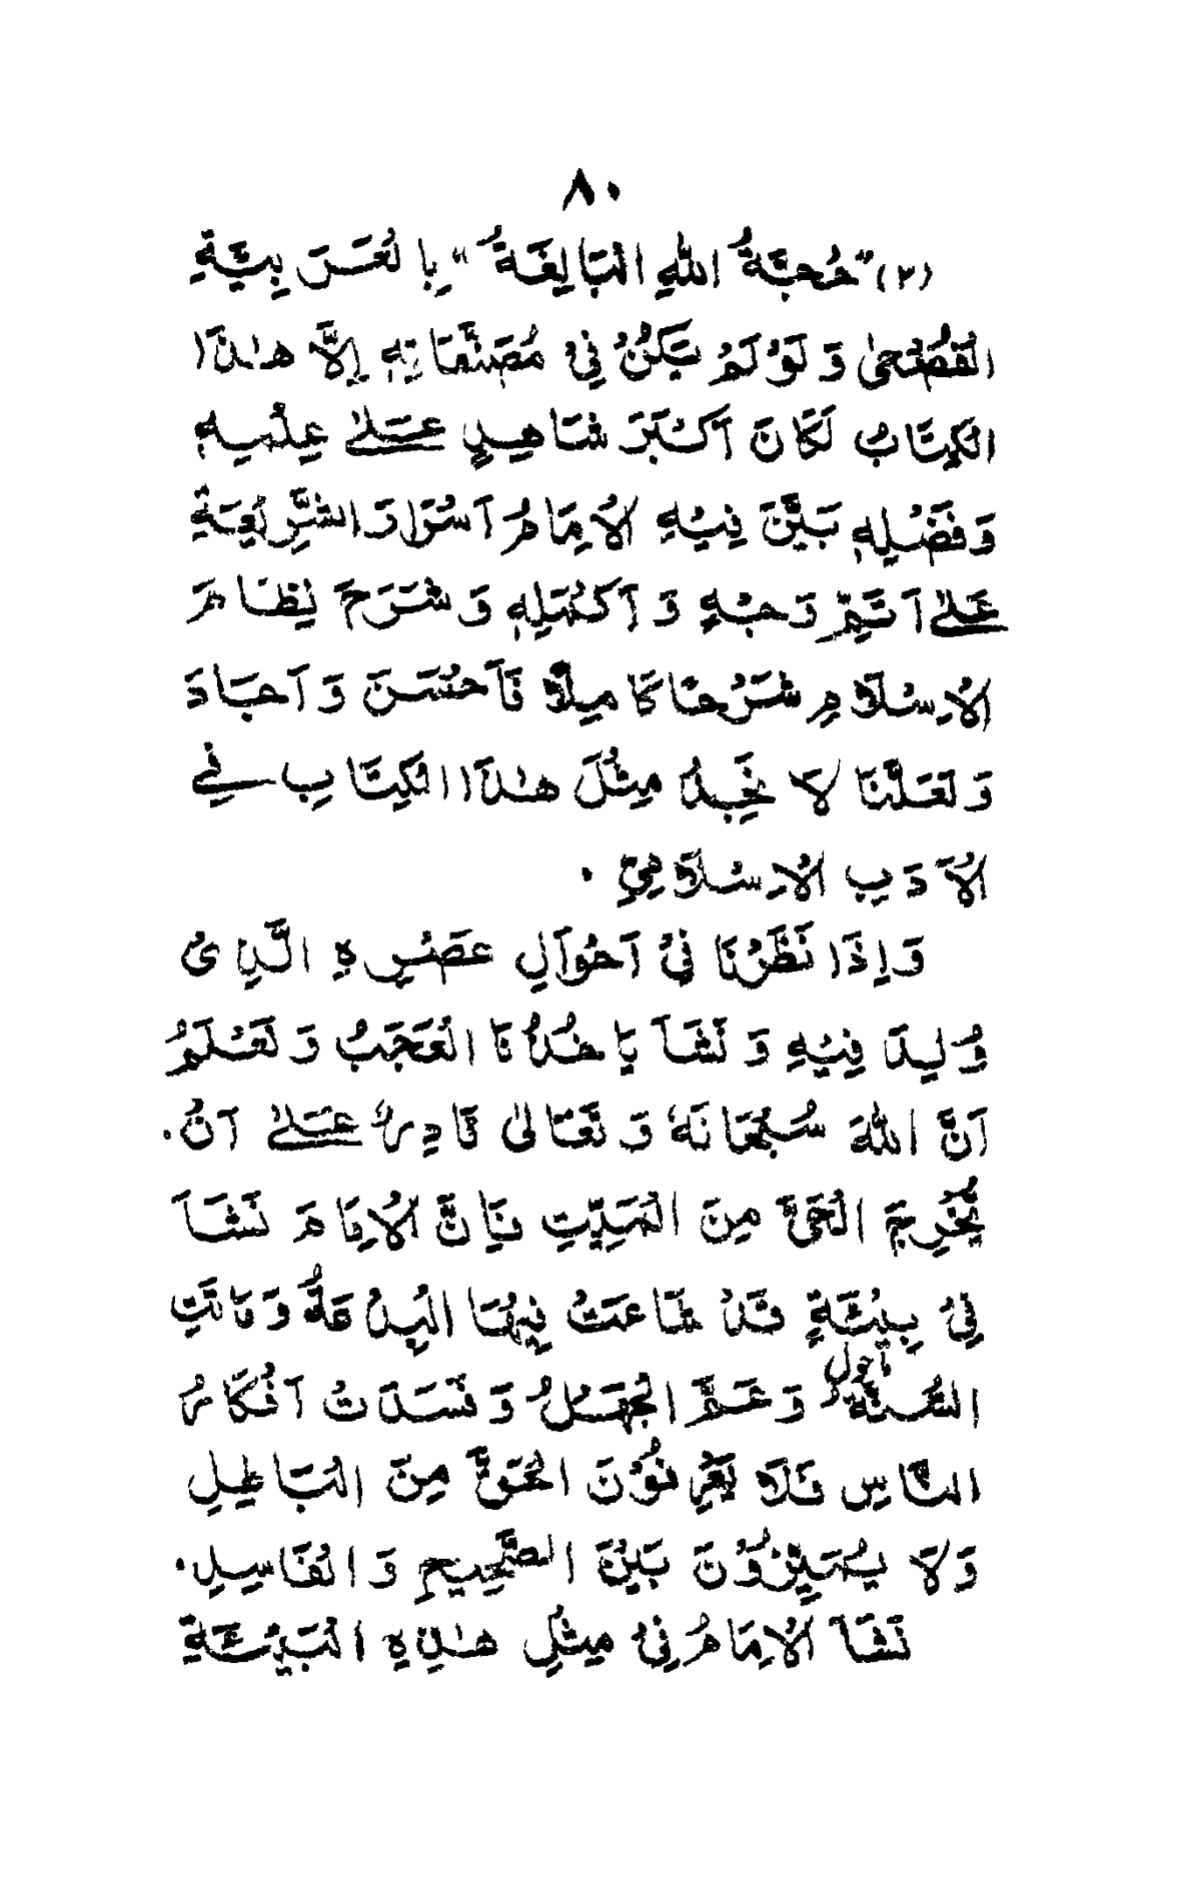 ٨٠
(٣) "حُجَّةُ اللهِ الْبَالِغَةُ" بِالْعَرَبِيَّةِ
الْفُصْحٰى وَلَوْ لَمْ يَكُنْ فِيْ مُصَنَّفَاتِهٖ إِلَّا هٰذَا
الْكِتَابُ لَكَانَ اَكْبَرَ شَاهِدٍ عَلىٰ عِلْمِهٖ
وَفَضْلِهٖ بَيَّنَ فِيْهِ الْاِمَامُ اَسْرَارَ الشَّرِيْعَةِ
عَلىٰ اَتَمِّ وَجْهٍ وَ اَكْمَلِهٖ وَ شَرَحَ نِظَامَ
الْاِسْلَامِ شَرْحًا كَامِلًا فَاَحْسَنَ وَ اَجَادَ
وَ لَعَلَّنَا لَا نَجِدُ مِثْلَ هٰذَا الْكِتَابِ فِي
الْاَدَبِ الْاِسْلَامِيِّ ٠
وَ اِذَا نَظَرْنَا فِيْ اَحْوَالِ عَصْرِهِ الَّذِيْ
وُلِدَ فِيْهِ وَ نَشَاَ يَاخُذُنَا الْعَجَبُ وَ نَعْلَمُ
اَنَّ اللهَ سُبْحَانَهٗ وَ تَعَالىٰ قَادِرٌ عَلىٰ اَنْ.
يُّخْرِجَ الْحَيَّ مِنَ الْمَيِّتِ فَاِنَّ الْاِمَامَ نَشَاَ
فِيْ بِيْئَةٍ قَدْ شَاعَتْ فِيْهَا الْبِدْعَةُ وَ مَاتَتِ
السُّنَّةُ وَ عَمَّ الْجَهْلُ وَ فَسَدَتْ اَفْكَارُ
النَّاسِ فَلَا يَعْرِفُوْنَ الْحَقَّ مِنَ الْبَاطِلِ
وَلَا يُمَيِّزُوْنَ بَيْنَ الصَّحِيْحِ وَ الْفَاسِدِ.
نَشَاَ الْاِمَامُ فِيْ مِثْلِ هٰذِهِ الْبَيْئَةِ